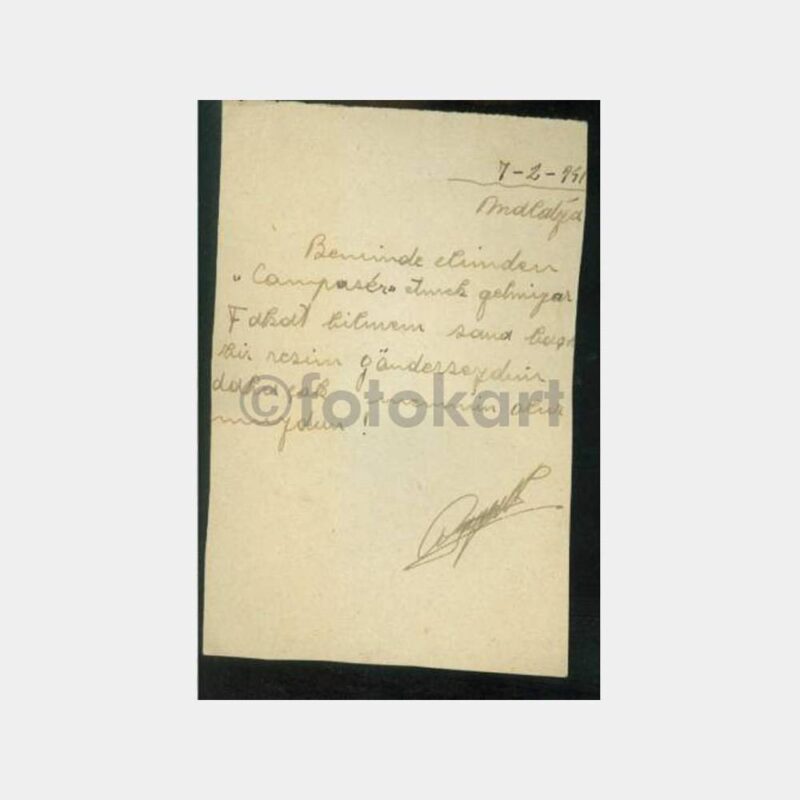 7-2-941
Malatya
Beninde elimden
"Campasér" etmek gelmiyor
Fakat bilmem sana başka
bir resim gönderseydim
daha çok memnun olur
muydun!
©fotokart